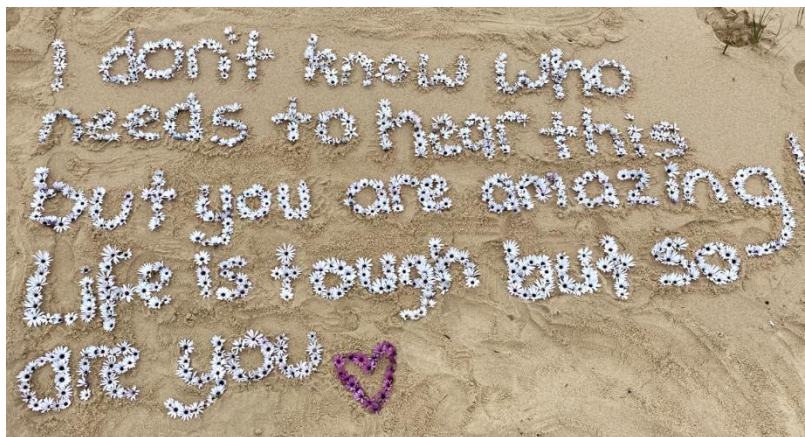 I don't know who
needs to hear this
but you are amazing!
Life is tough but so
are you